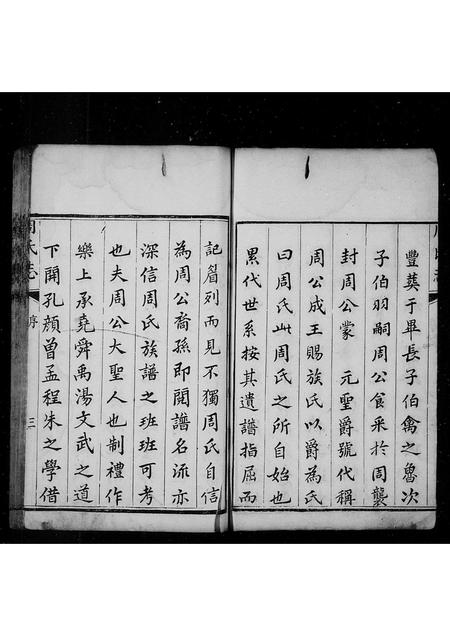 豐葬于畢長子伯禽之魯次
子伯羽嗣周公食采於周襲
封周公蒙　元聖爵號代稱
周公成王賜族氏以爵為氏
曰周氏此周氏之所自始也
累代世系按其遺譜指屈而
記晷列而見不獨周氏自信
為周公裔孫即開譜名流亦
深信周氏族譜之班班可考
也夫周公大聖人也制禮作
樂上承堯舜禹湯文武之道
下開孔顏曾孟程朱之學借
周氏志
序
三